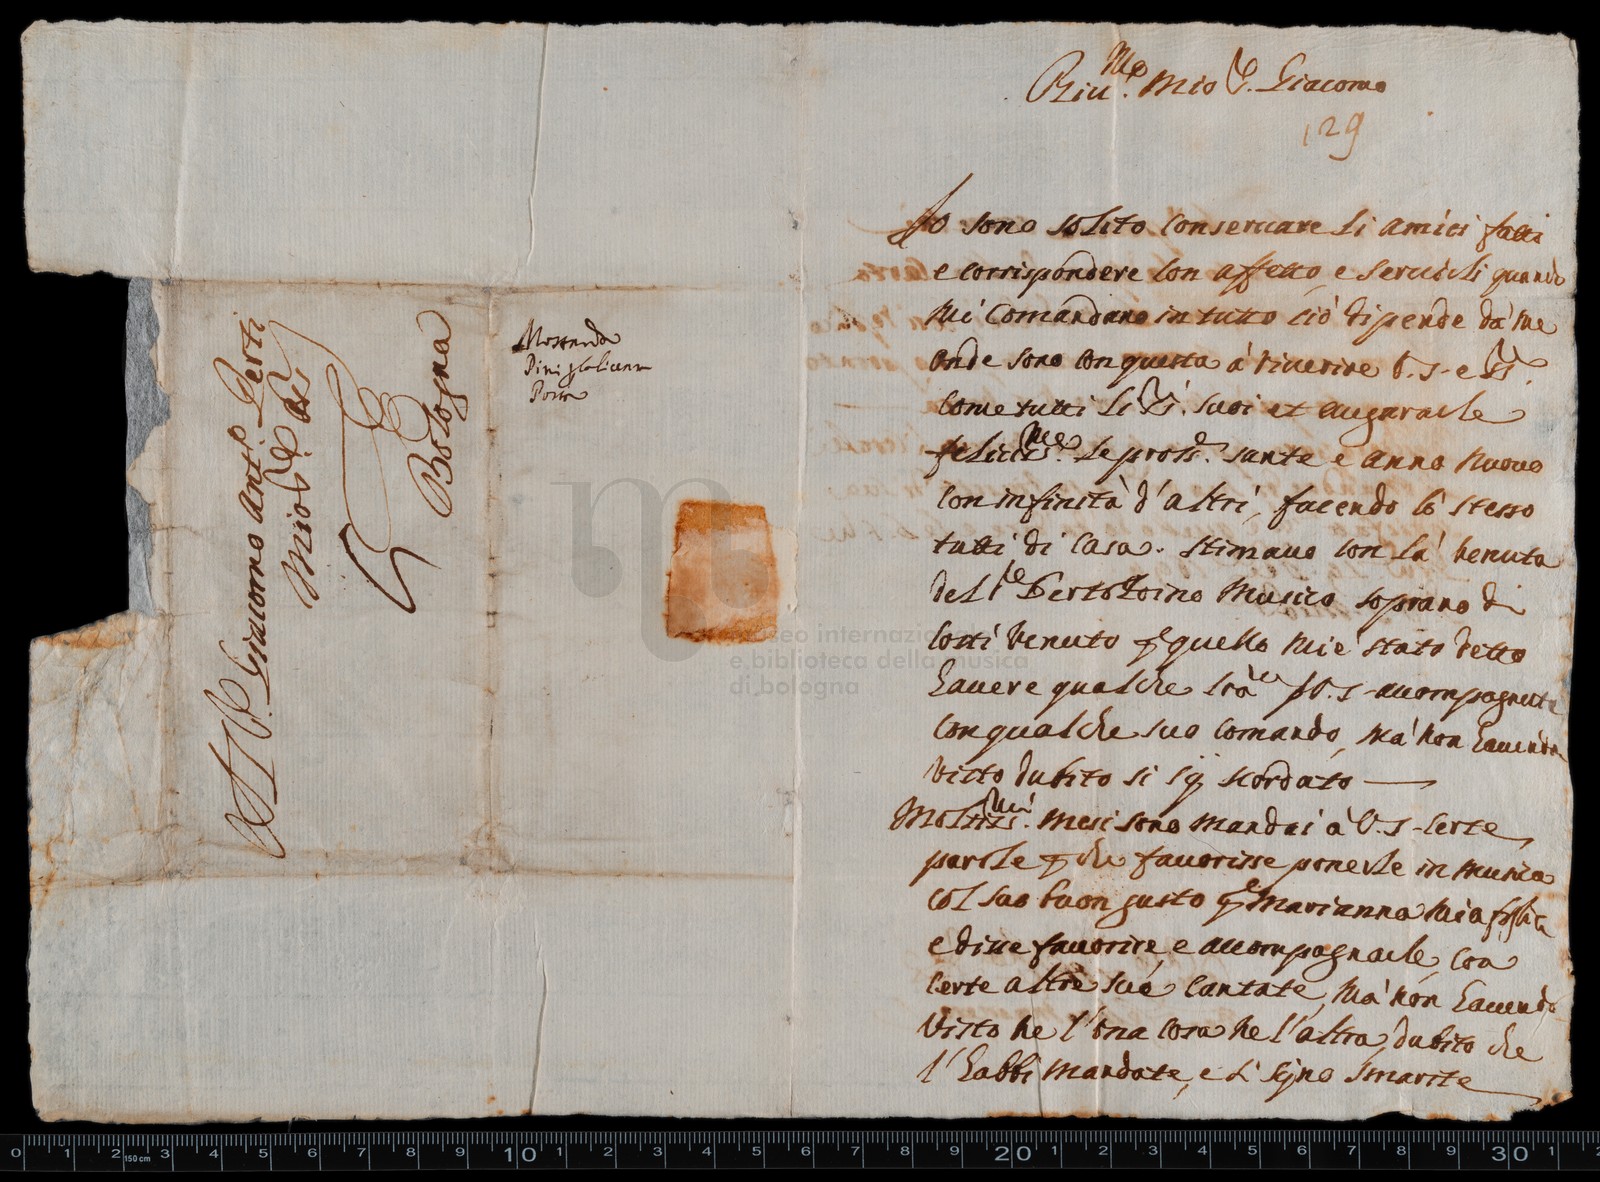 Riu.mo Mio S. Giacomo
129
Io sono solito conseruare li amici fatti
e corrispondere con affetto, e seruirli quando
mi comandano in tutto ciò dipende dà me
onde sono con questa à riuerire V.S. e
come tutti li suoi et augurarle
feliciss.me le pross.e sante e anno nuouo
con infinità d'altri, facendo lo stesso
tutti di casa. stimauo con là venuta
del Bertoldino Musico soprano di
costì venuto quello mi è stato detto
hauere qualche V.S. accompagnata
con qualche suo comando, mà non hauendo
visto dubito si sij scordato
Moltiss.mi mesi sono mandai à V.S. certe
parole che fauorisse ponerle in musica
col suo buon gusto Marianna mia figlia
e disse fauorire, e accompagnarle con
certe altre sue cantate, mà non hauendo
visto ne l'una cosa ne l'altra, dubito che
l'habbi mandate, e si sijno smarite
Giacomo Ant.o Perti
Mio S.
Bologna
museo internazionale
e biblioteca della musica
di bologna
0 1 2 3 4 5 6 7 8 9 10 1 2 3 4 5 6 7 8 9 20 1 2 3 4 5 6 7 8 9 30 1
150 cm